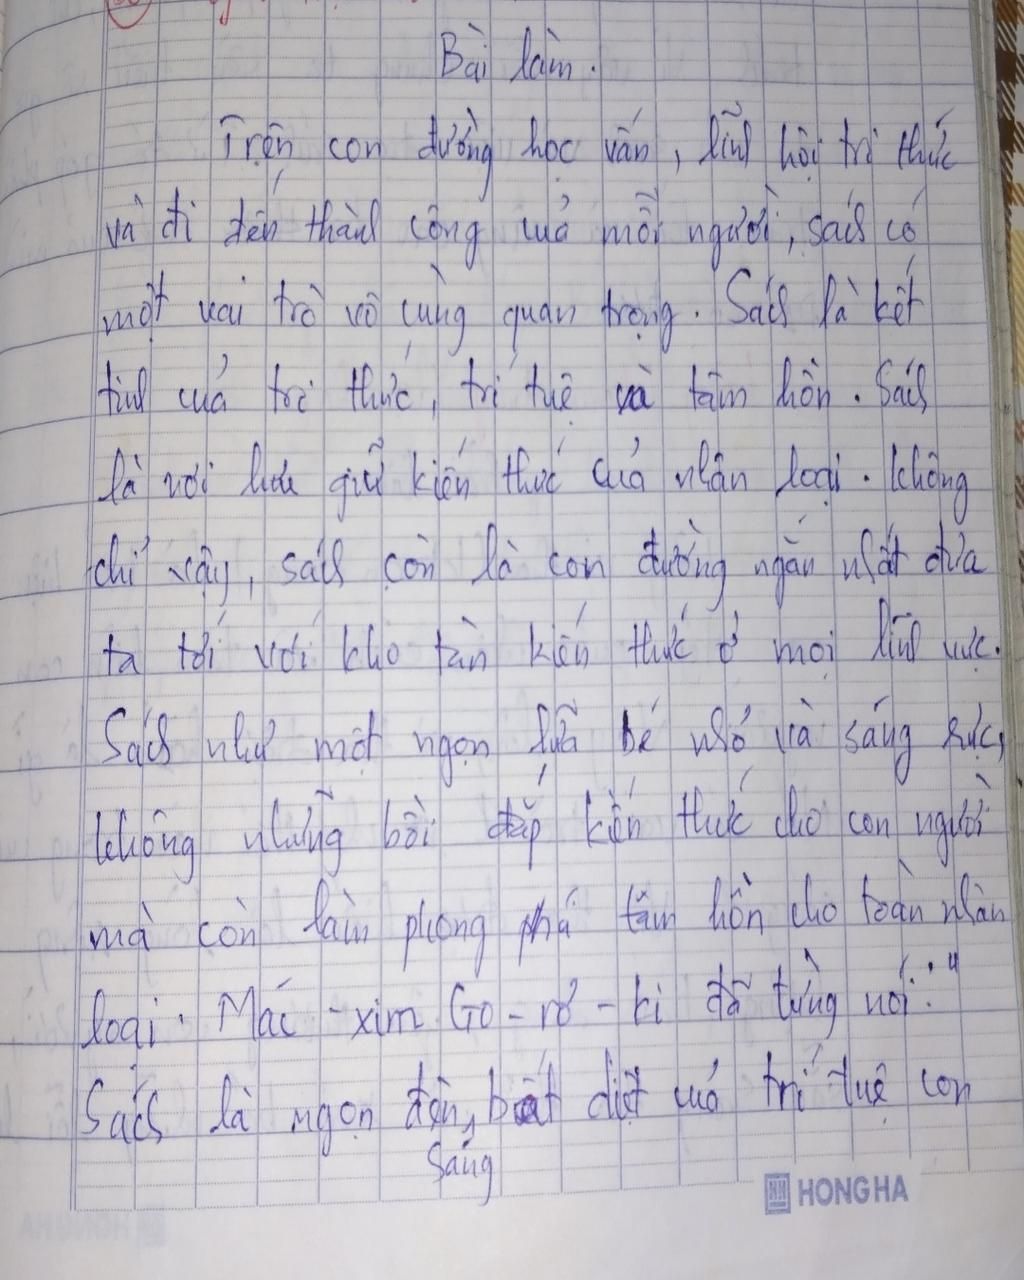 Bài làm.
Trên con đường học vấn, lĩnh hội tri thức
và đi đến thành công của mỗi người, sách có
một vai trò vô cùng quan trọng. Sách là kết
tinh của tri thức, trí tuệ và tâm hồn. Sách
là nơi lưu giữ kiến thức của nhân loại. Không
chỉ vậy, sách còn là con đường ngắn nhất đưa
ta tới với kho tàn kiến thức ở mọi lĩnh vực.
Sách như một ngọn lửa bé nhỏ và sáng rực,
không những bồi đắp kiến thức cho con người
mà còn làm phong phú tâm hồn cho toàn nhân
loại. Mác-xim Go-rơ-ki đã từng nói: "
Sách là ngọn đèn, bất diệt của trí tuệ con
sáng
HONG HA